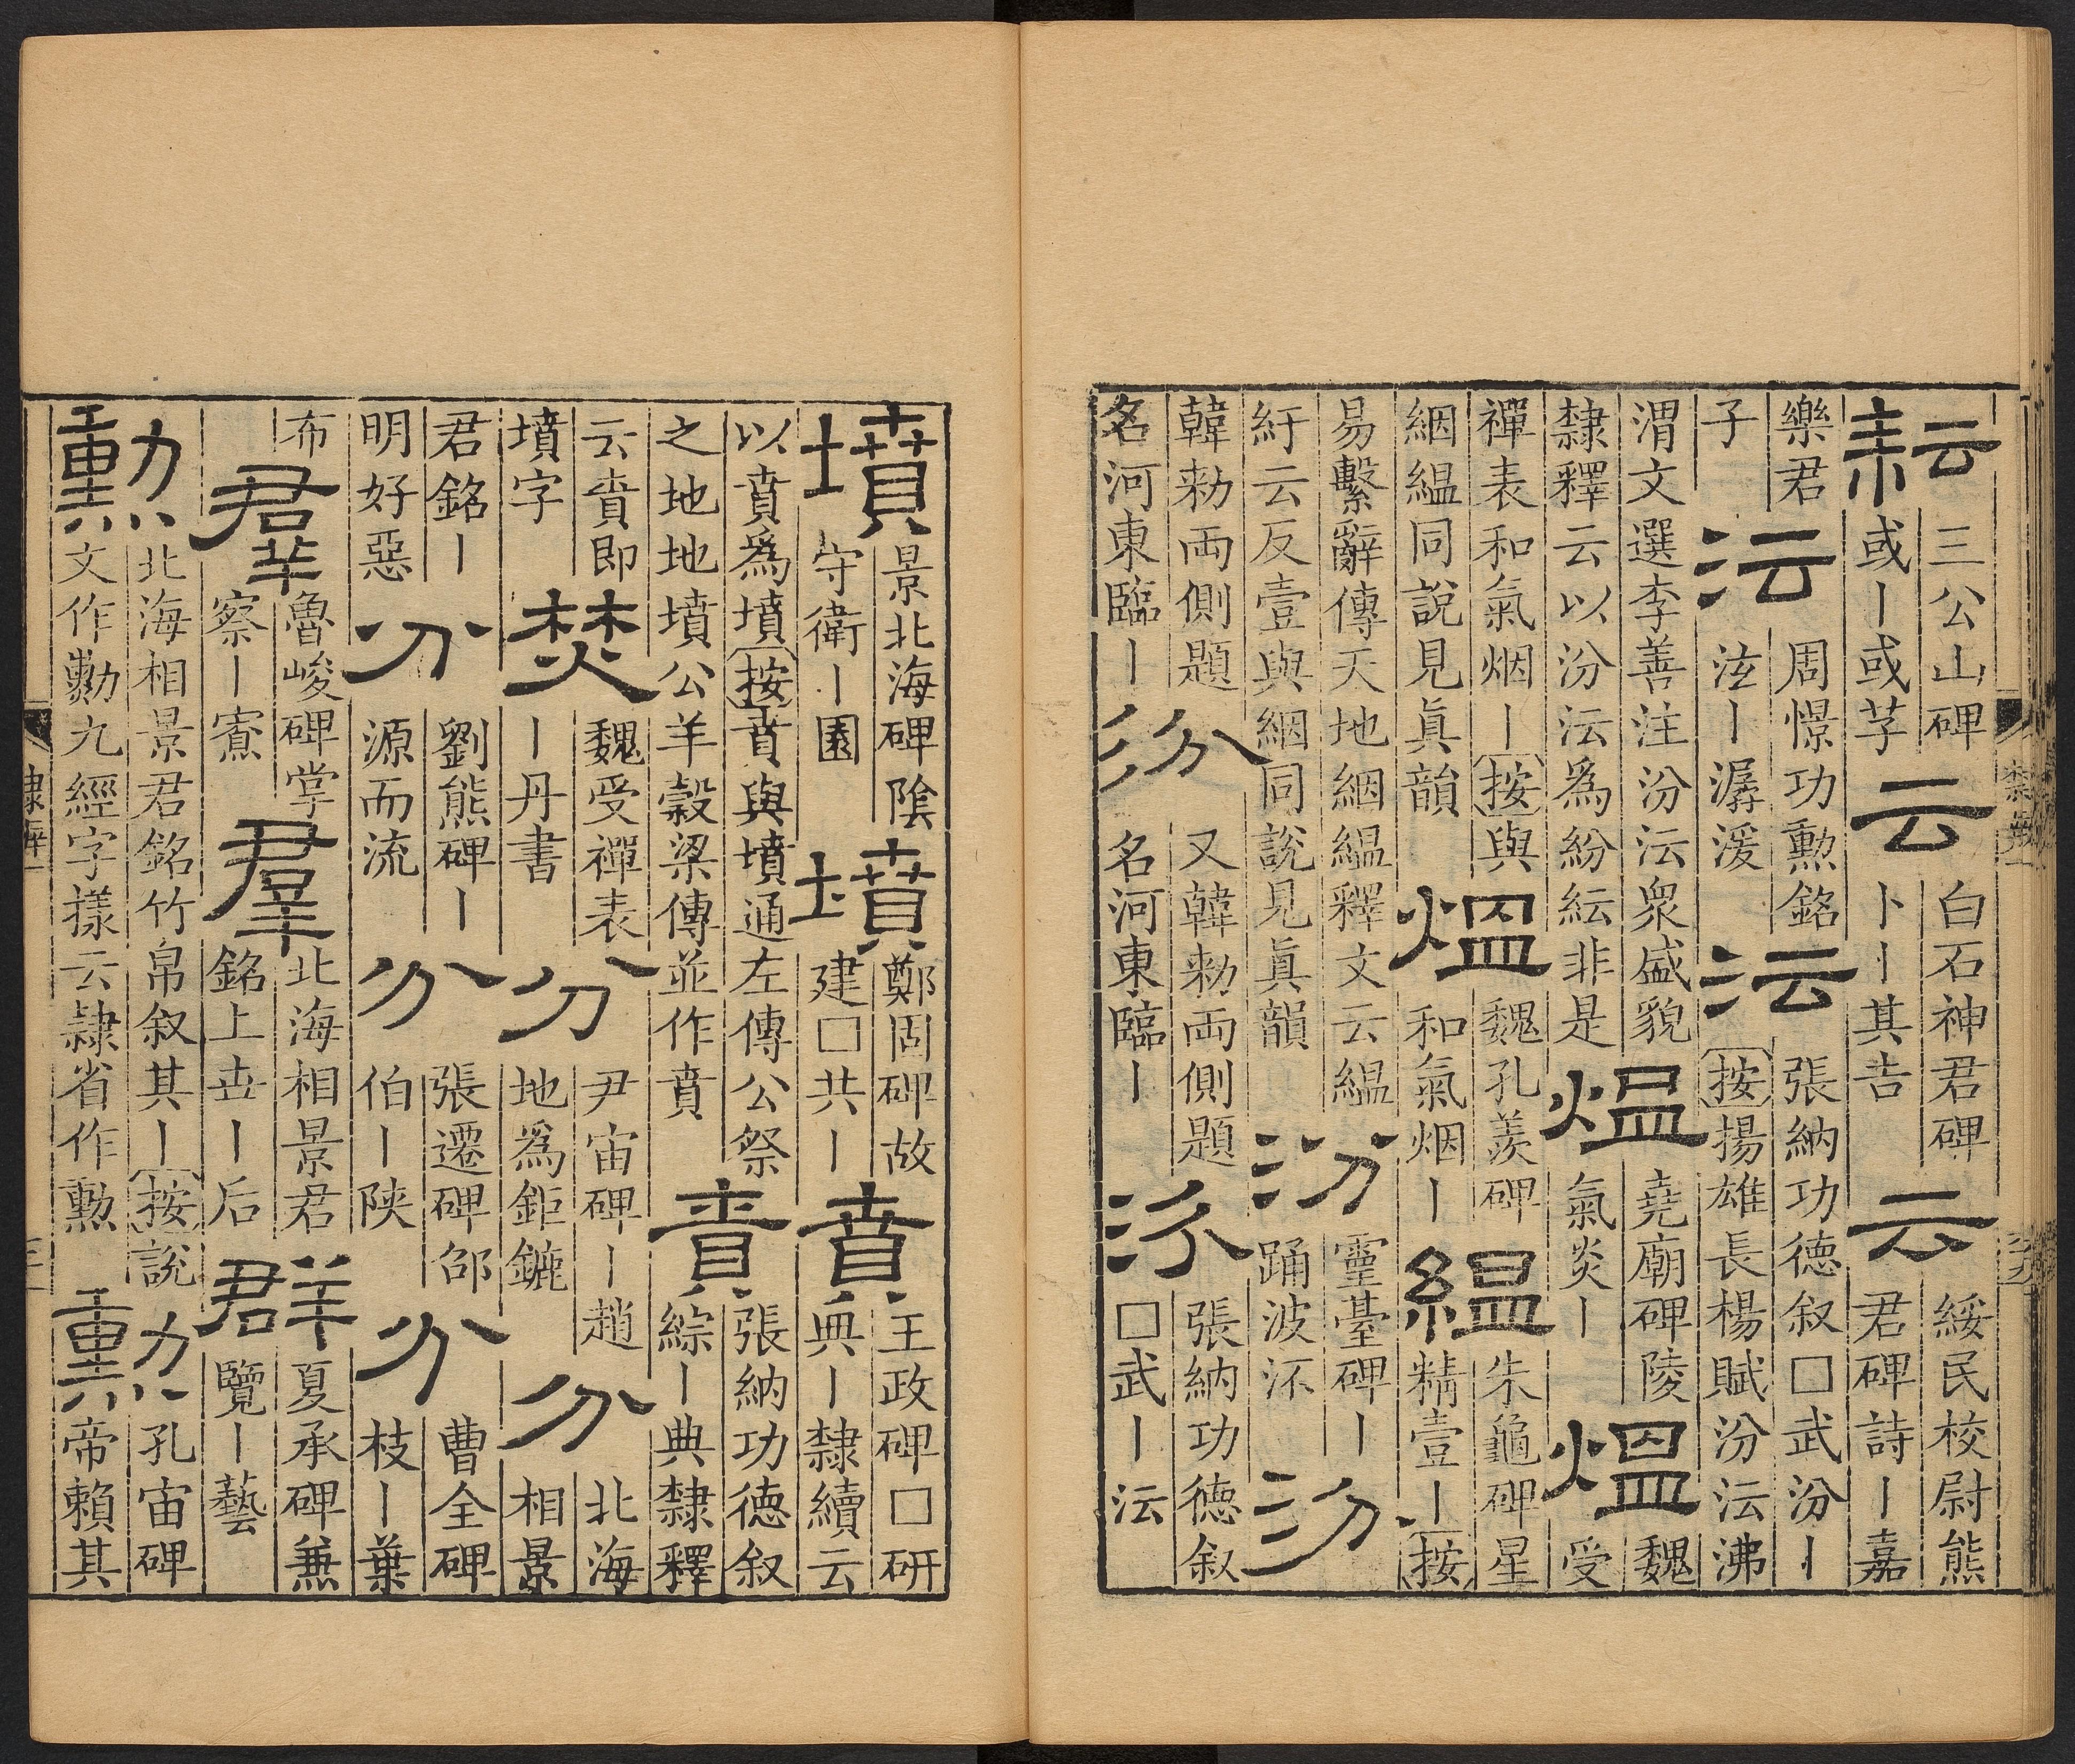 耘三公山碑或丨或芓云白石神君碑卜丨其吉云綏民校尉熊君碑詩丨嘉
樂君子沄周憬功勲銘泫丨潺湲沄張納功德叙□武汾丨按揚雄長楊賦汾沄沸
渭文選李善注汾沄衆盛貌隸釋云以汾沄爲紛紜非是熅堯廟碑陵氣炎丨熅魏受
禪表和氣烟丨按與絪緼同說見眞韻熅魏孔羨碑和氣烟丨緼朱龜碑星精壹丨按
易繫辭傳天地絪緼釋文云緼紆云反壹與絪同說見眞韻汾靈臺碑丨踊波汾
韓勑両側題名河東臨丨汾又韓勑両側題名河東臨丨汾張納功德叙□武丨沄
墳景北海碑陰守衛丨園墳鄭固碑故建□共丨賁王政碑□研典丨隸續云
以賁爲墳按賁與墳通左傳公祭之地地墳公羊榖梁傳並作賁賁張納功德叙綜丨典隸釋
云賁即墳字焚魏受禪表丨丹書分尹宙碑丨趙地爲鉅鏕分北海相景
君銘丨明好惡分劉熊碑丨源而流分張遷碑邵伯丨陝分曹全碑枝丨葉
布羣魯峻碑掌察丨寮羣北海相景君銘上世丨后群夏承碑兼覽丨藝
勲北海相景君銘竹帛叙其丨按說文作勳九經字樣云隸省作勲勲孔宙碑帝賴其